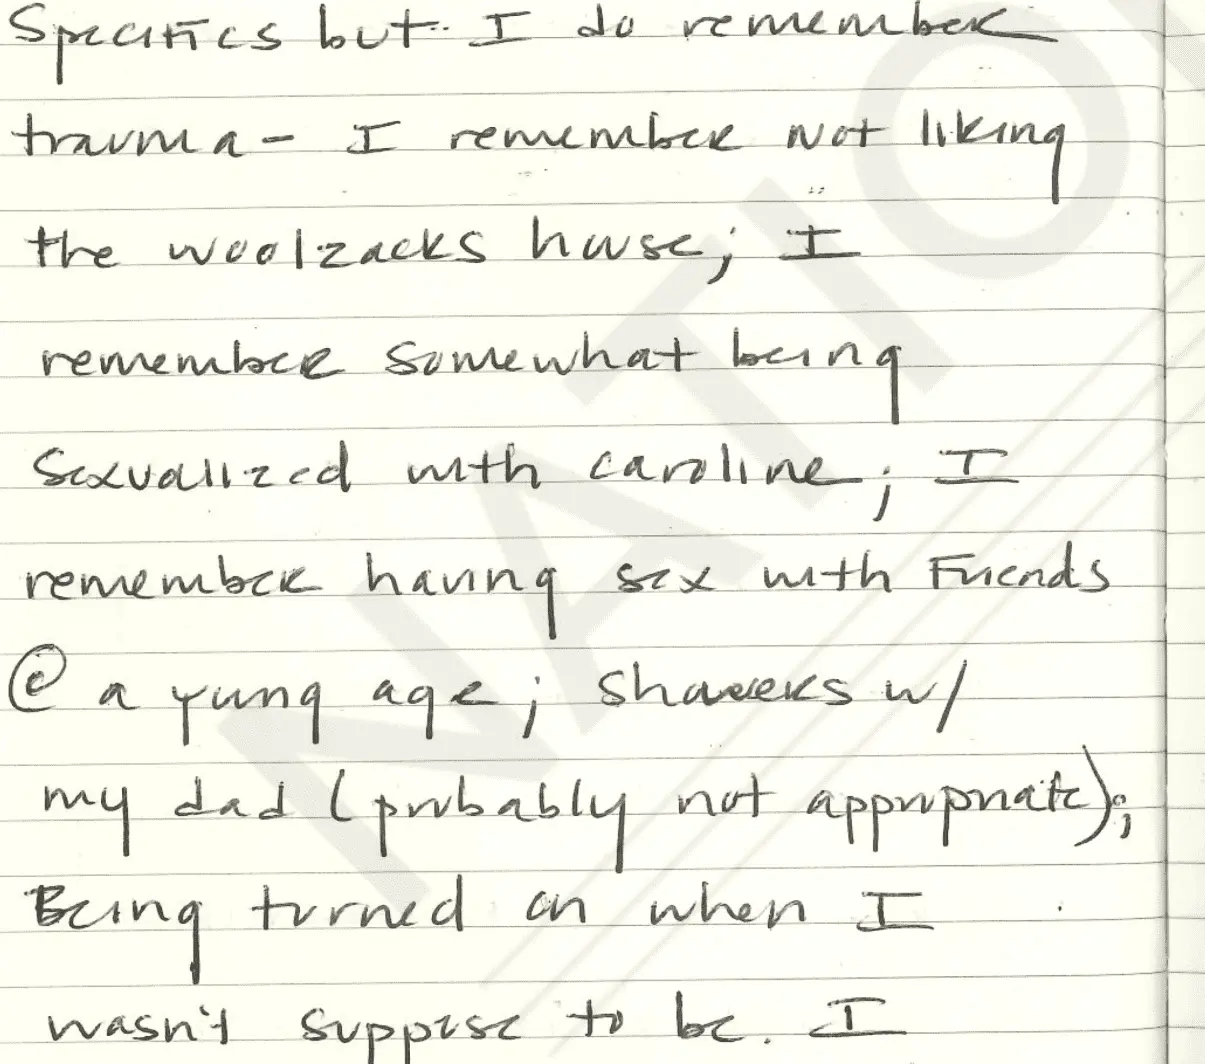 Specifics but.. I do remember
trauma - I remember not liking
the woolzacks house; I
remember somewhat being
sexualized with caroline; I
remember having sex with Friends
@ a young age; showers w/
my dad (probably not appropriate);
Being turned on when I
wasn't suppose to be. I
NATIO